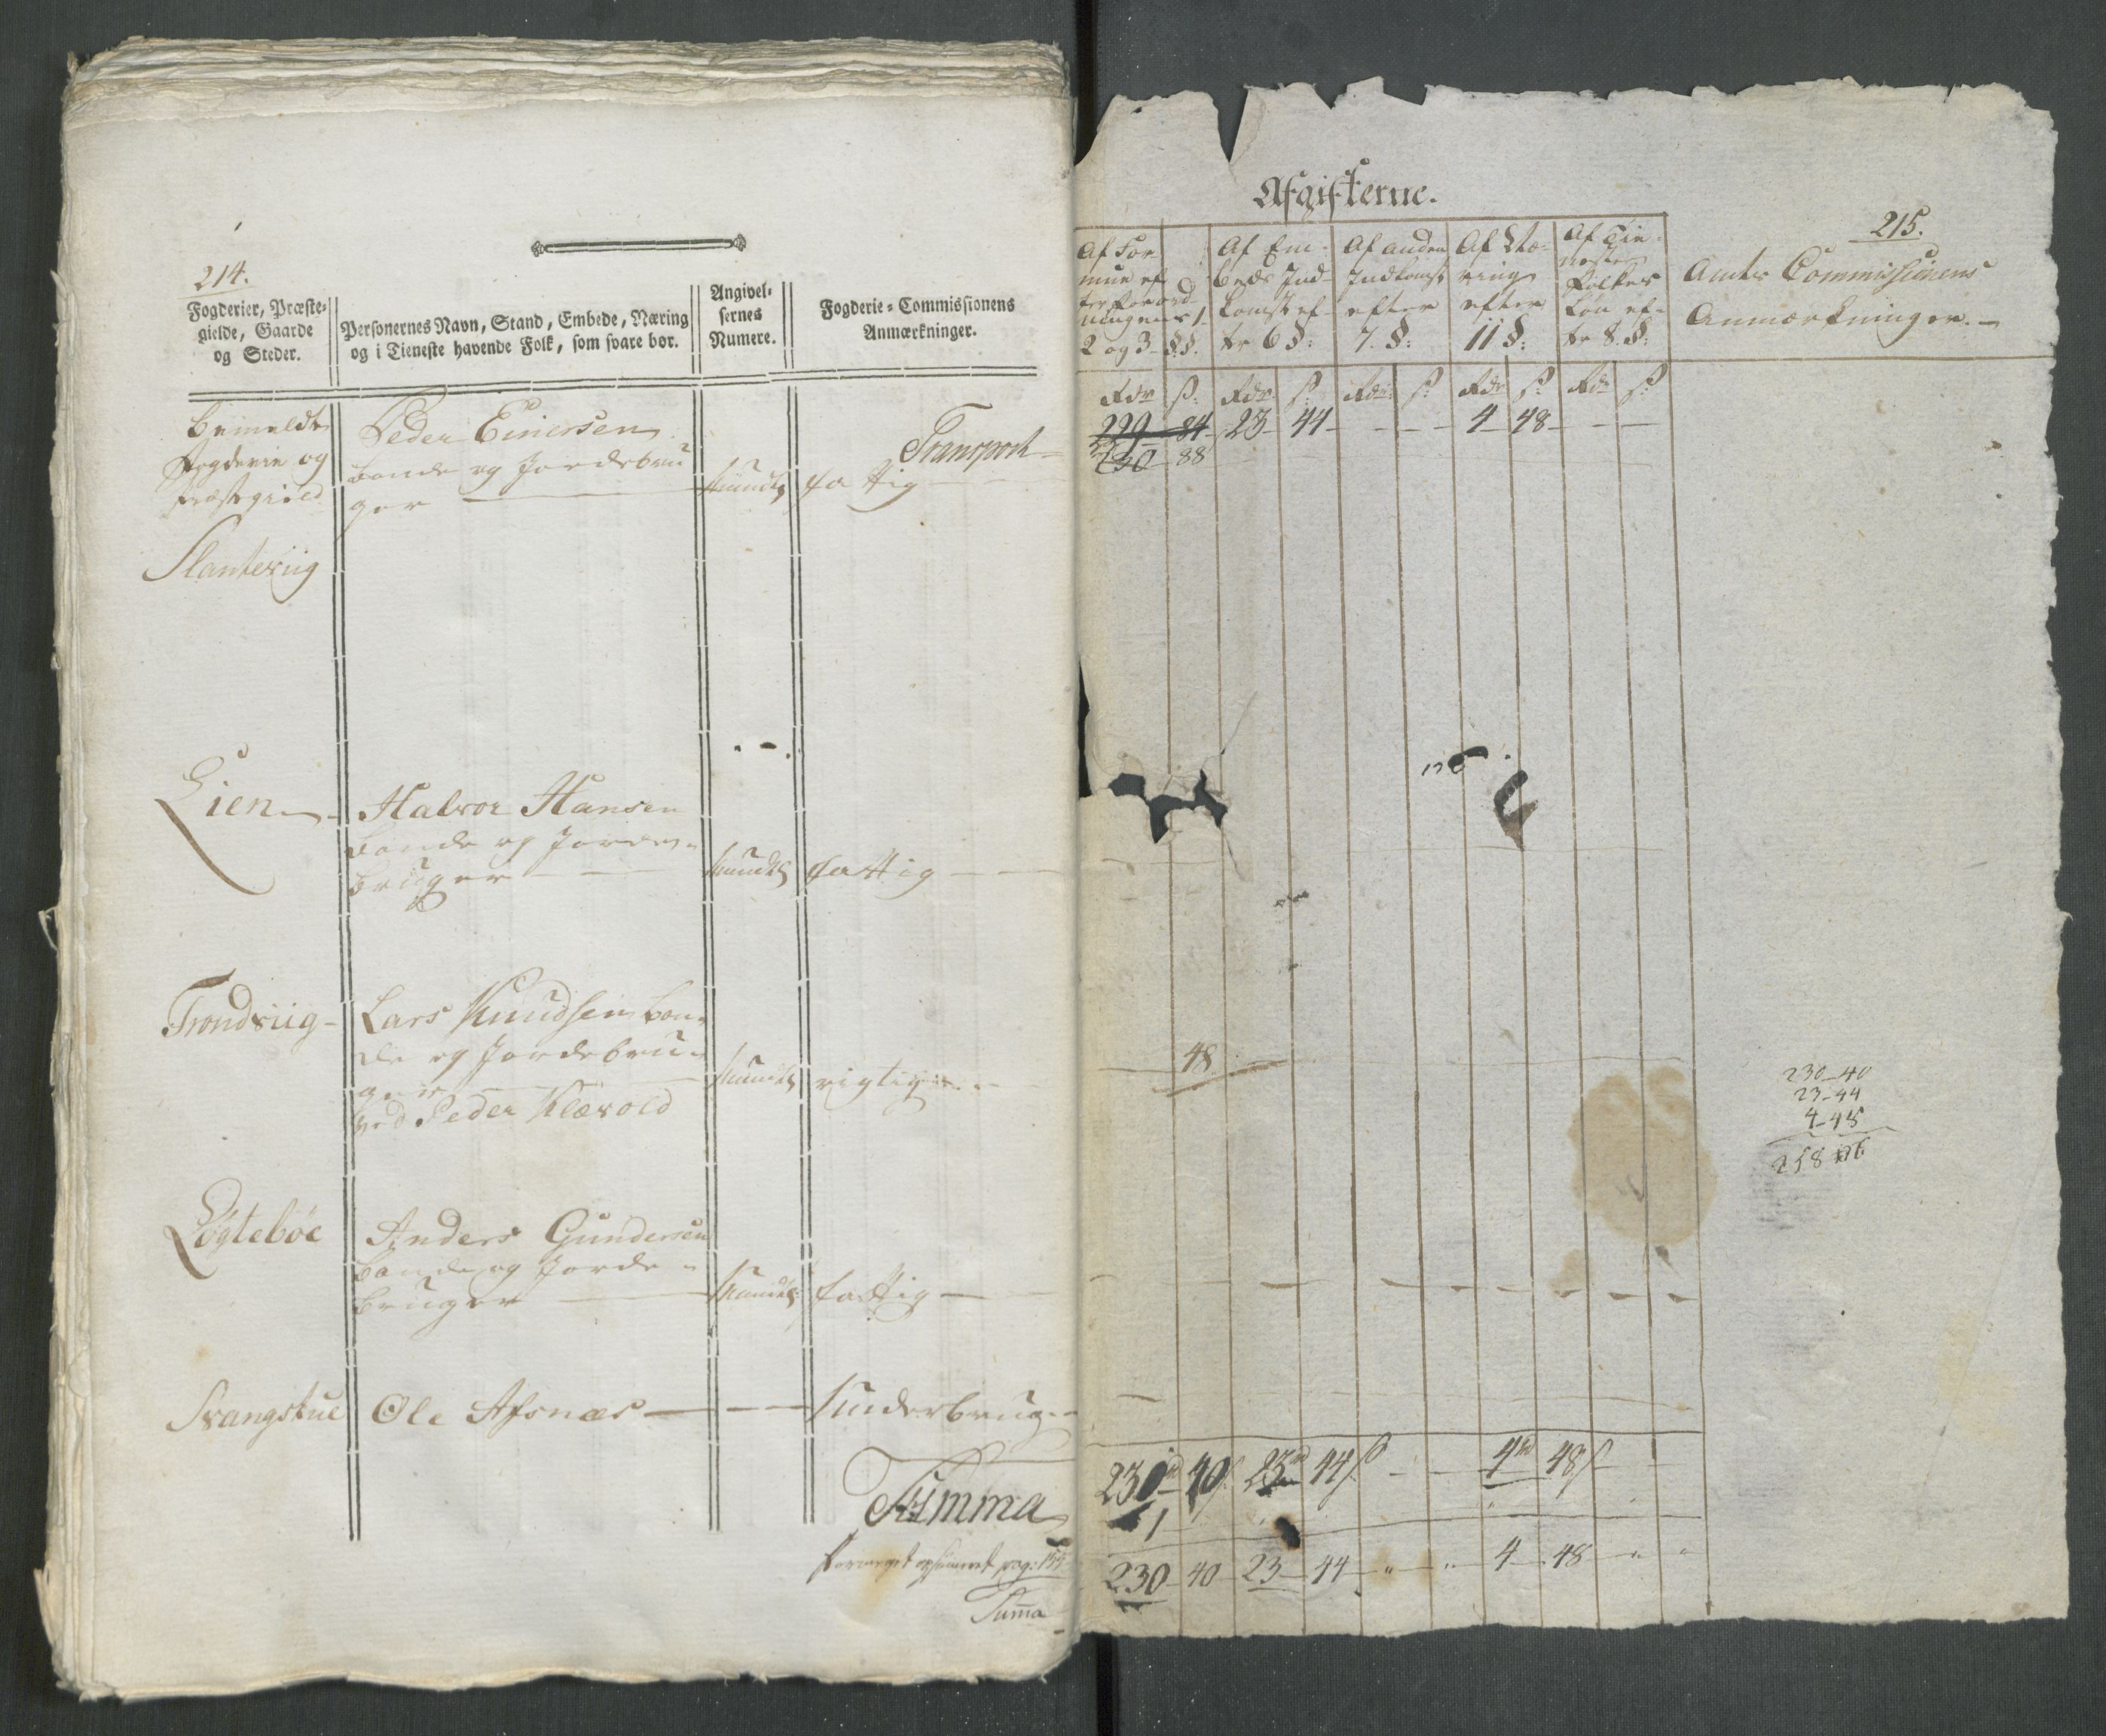 214.
Fogderier, Præste-
gielde, Gaarde
og Steder.
Personernes Navn, Stand, Embede, Næring
og i Tieneste havende Folk, som svare bør.
Angivel-
sernes
Numere.
Fogderie-Commissionens
Anmærkninger.
Bemeldte
Fogderie og
Præstegield
Slanteviig
Peder Einersen
bonde og Jordebru
ger
Mundtl
Transport
fattig
Lien
Halvor Hansen
bonde og Jorde
bruger
Mundtl
fattig
Trondviig
Lars Knudsen bon-
de og Jordebru-
ger
ved Peder Klævold
Mundtl
rigtig
Løgtebøe
Anders Gundersen
bonde og Jorde-
bruger
Mundtl
fattig
Svangstue
Ole Afsnæs
Underbrug
Summa
pag: 155
Suma
Afgifterne.
215.
Af For
mue ef
ter Forord
ningens 1.
2 og 3 §§.
Af Em-
beds Ind-
komst ef-
ter 6 §:
Af anden
Indkomst
efter
7. §:
Af Næ-
ring
efter
11 §:
Af Tie-
neste
Folkes
Løn ef-
ter 8. §:
Amts Commissionens
Anmærkninger.
Rdr ß: Rdr ß: Rdr ß: Rdr ß: Rdr ß:
229 84 23 44 - - 4 48 - -
230 88
48
230-40
23-44
4-48
258
230 40 23 44 4 48
1
230 40 23 44 " " 4 48 " "